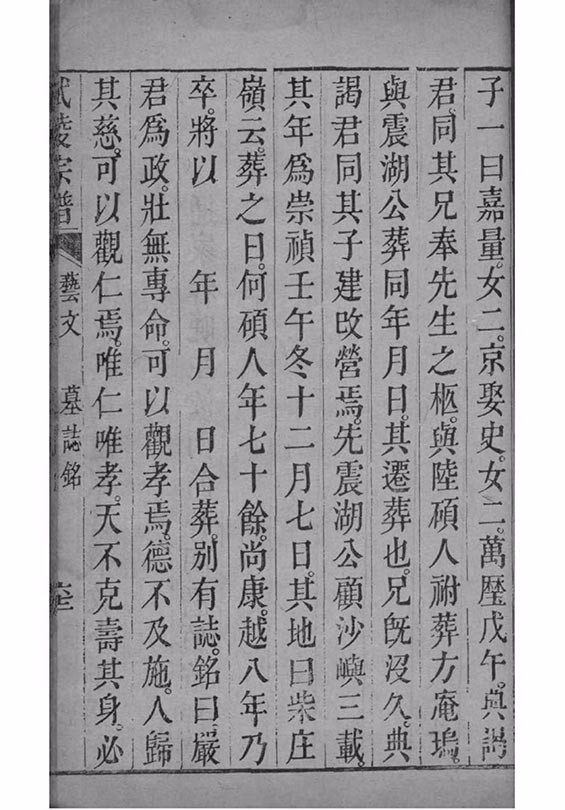 子一曰嘉量。女二。京娶史。女二。萬歴戊午。典謁
君同其兄奉先生之柩。與陸碩人祔葬方庵塢。
與震湖公葬同年月日。其遷葬也。兄旣沒久。典
謁君同其子建改營焉。先震湖公顧沙嶼三載。
其年爲崇禎壬午冬十二月七日。其地曰柴庄
嶺云。葬之日。何碩人年七十餘。尚康。越八年乃
卒。將以 年 月 日合葬。别有誌。銘曰嚴
君爲政。壯無專命。可以觀孝焉。德不及施。人歸
其慈。可以觀仁焉。唯仁唯孝。天不克壽其身。必
武陵宗譜 藝文 墓誌銘